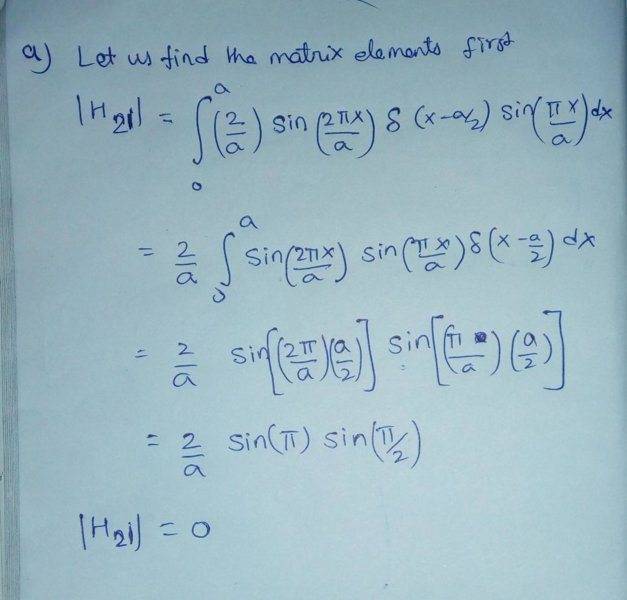 a) Let us find the matrix elements first
|H₂₁| = ∫₀ᵃ (2/a) sin(2πx/a) δ (x-a/2) sin(πx/a) dx
= 2/a ∫₀ᵃ sin(2πx/a) sin(πx/a) δ(x-a/2) dx
= 2/a sin[(2π/a)(a/2)] sin[(π/a)(a/2)]
= 2/a sin(π) sin(π/2)
|H₂₁| = 0